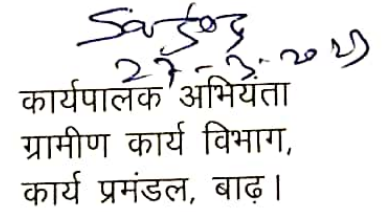 27-3-2025
कार्यपालक अभियंता
ग्रामीण कार्य विभाग,
कार्य प्रमंडल, बाढ़।